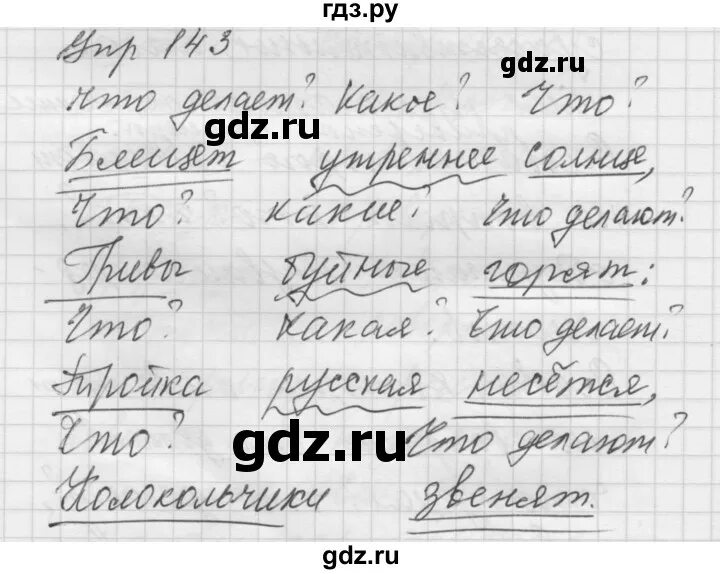 гдз.ру
Упр 143
Что делает? Какое? Что?
gdz.ru
Блещет утреннее солнце,
Что? какие? Что делают?
Гривы буйные горят:
gdz.ru
Что? Какая? Что делает?
Тройка русская несётся,
gdz.ru
Что? Что делают?
Колокольчики звенят.
gdz.ru